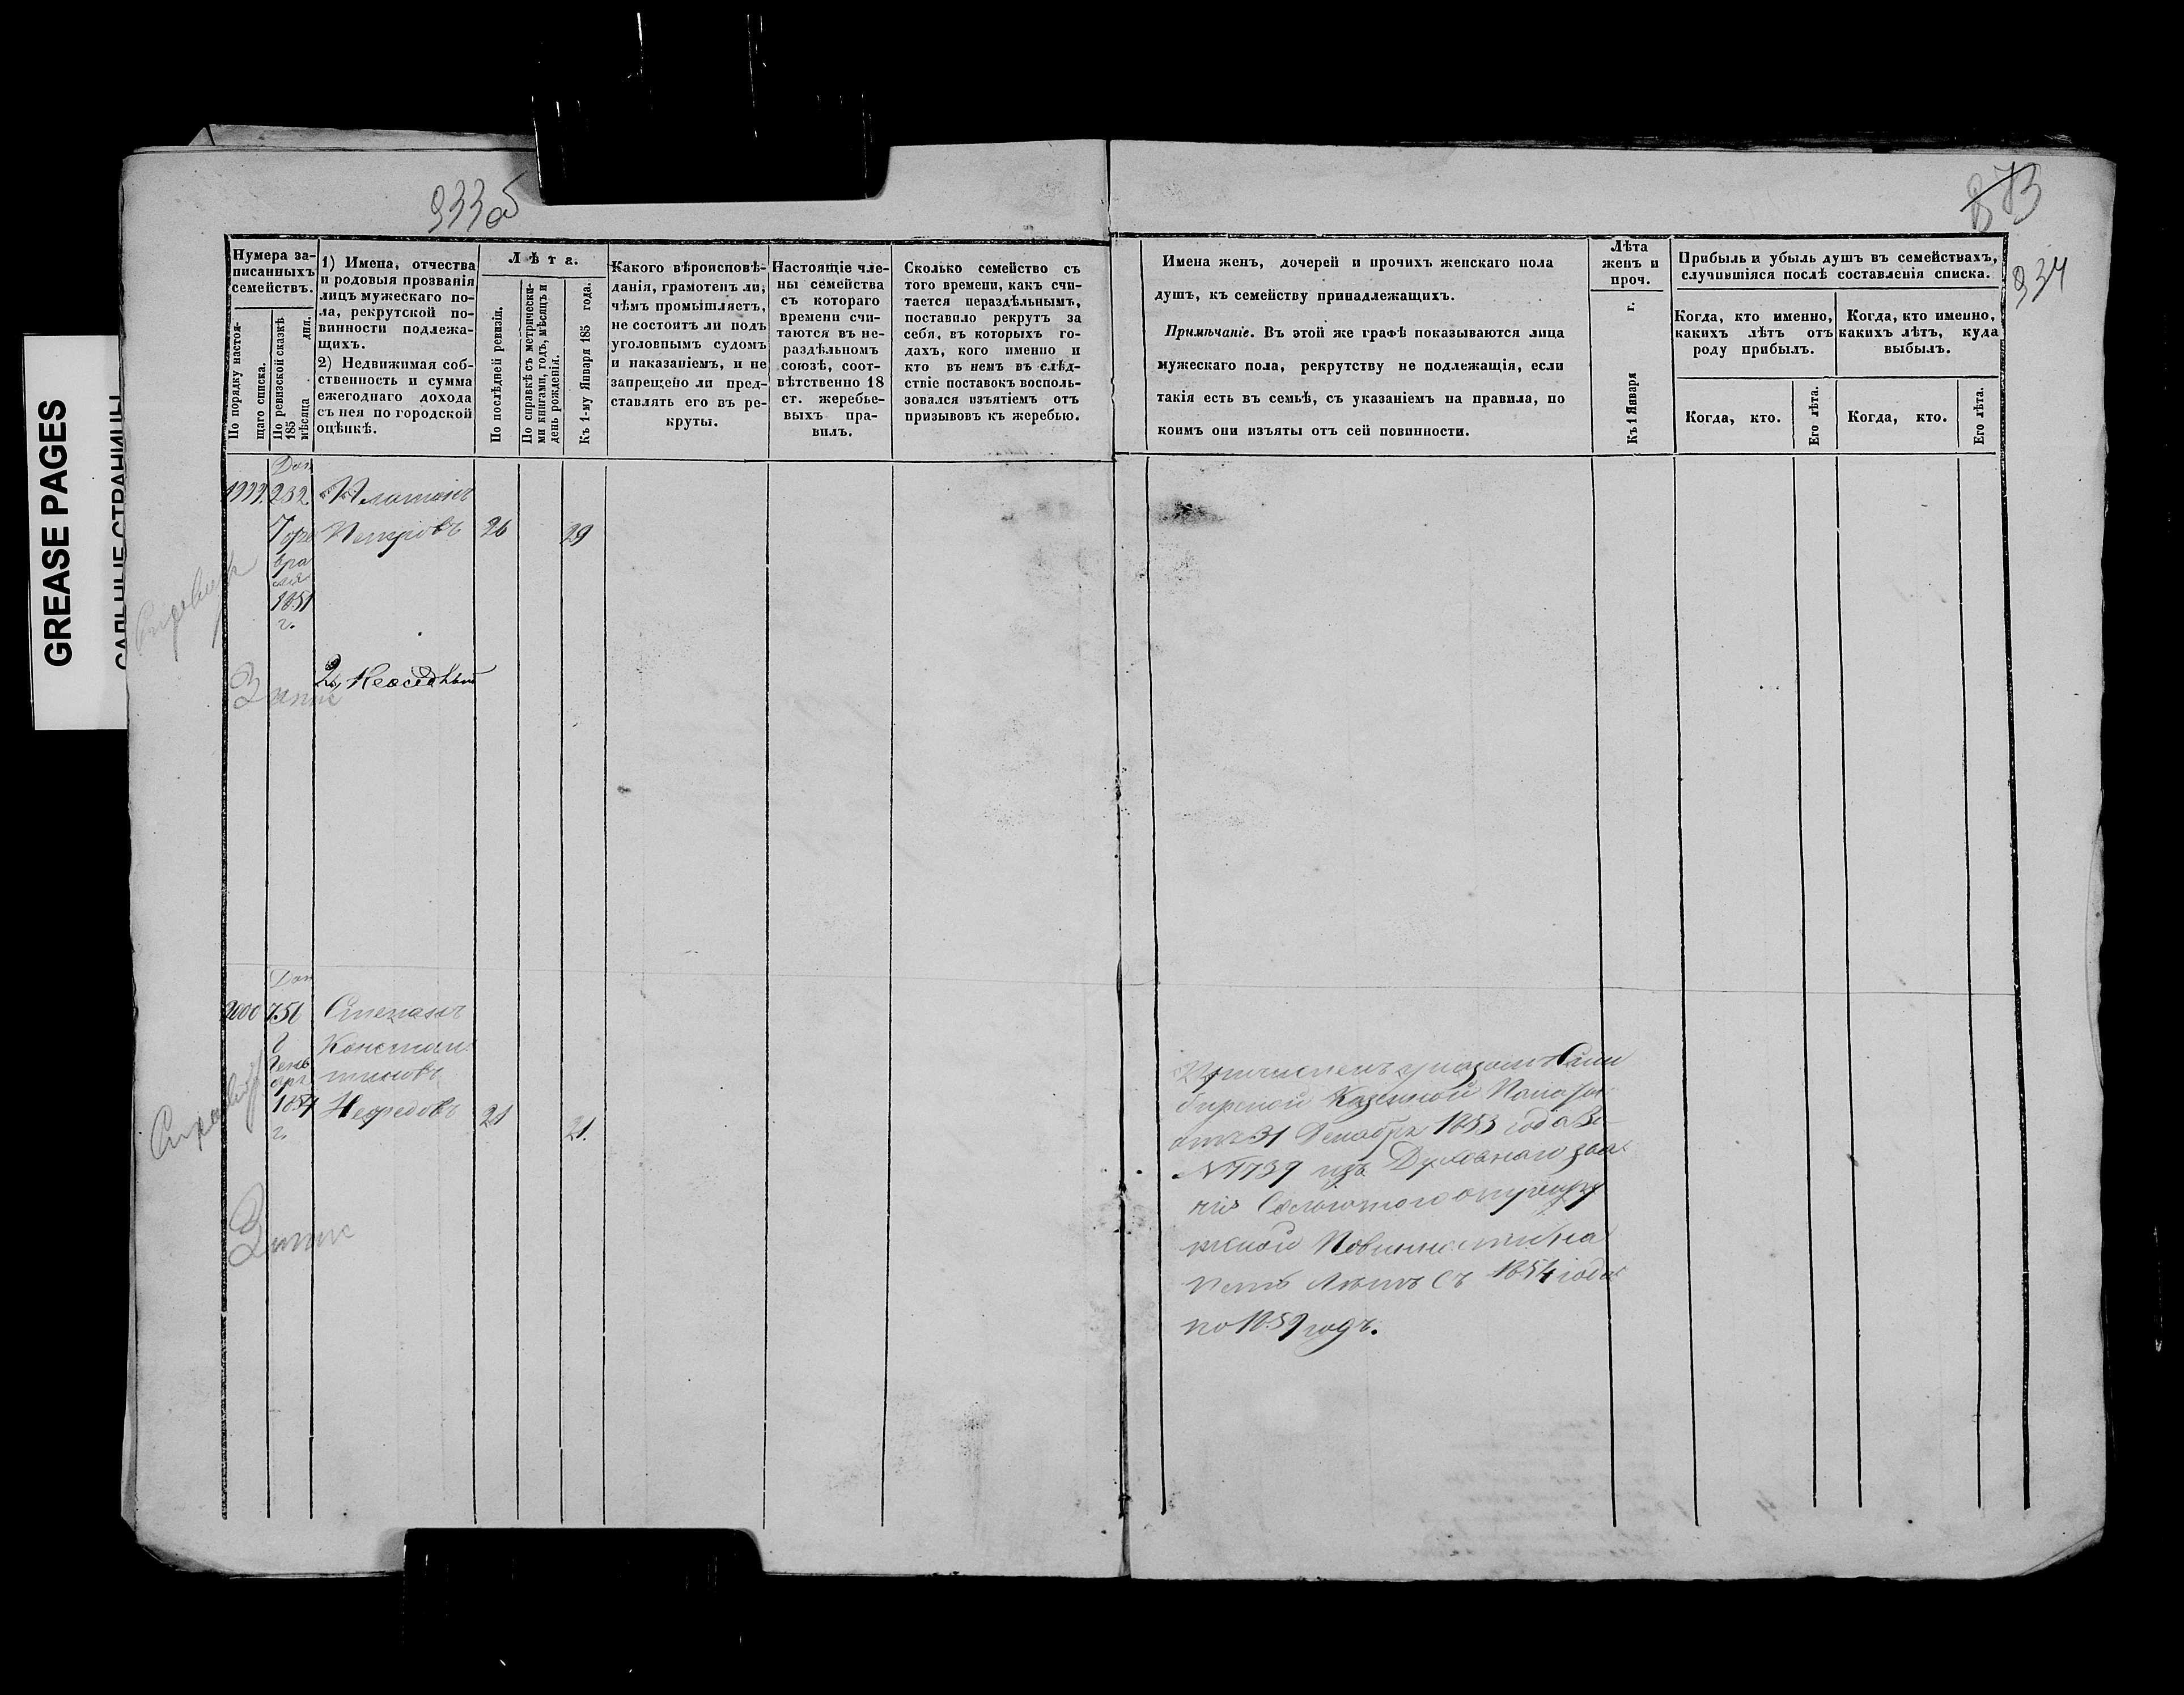 GREASE PAGES
САЛЬНЫЕ СТРАНИЦЫ
933об
873
934
Нумера за-
писанныхъ
семействъ.
По порядку настоя-
щаго списка.
По ревизской сказкѣ
185 мѣсяца дня.
1) Имена, отчества
и родовыя прозванія
лицъ мужескаго по-
ла, рекрутской по-
винности подлежа-
щихъ.
2) Недвижимая соб-
ственность и сумма
ежегоднаго дохода
съ нея по городской
оцѣнкѣ.
Лѣта.
По послѣдней ревизіи.
По справкѣ съ метрически-
ми книгами, годъ, мѣсяцъ и
день рожденія.
Къ 1-му Января 185 года.
Какого вѣроисповѣ-
данія, грамотенъ ли,
чѣмъ промышляетъ,
не состоитъ ли подъ
уголовнымъ судомъ
и наказаніемъ, и не
запрещено ли пред-
ставлять его въ ре-
круты.
Настоящіе чле-
ны семейства
съ котораго
времени счи-
таются въ не-
раздѣльномъ
союзѣ, соот-
вѣтственно 18
ст. жеребье-
выхъ пра-
вилъ.
Сколько семейство съ
того времени, какъ счи-
тается нераздѣльнымъ,
поставило рекрутъ за
себя, въ которыхъ го-
дахъ, кого именно и
кто въ немъ въ слѣд-
ствіе поставокъ восполь-
зовался изъятіемъ отъ
призывовъ къ жеребью.
Имена женъ, дочерей и прочихъ женскаго пола
душъ, къ семейству принадлежащихъ.
Примѣчаніе. Въ этой же графѣ показываются лица
мужескаго пола, рекрутству не подлежащія, если
такія есть въ семьѣ, съ указаніемъ на правила, по
коимъ они изъяты отъ сей повинности.
Лѣта
женъ и
проч.
Къ 1 Января г.
Прибыль и убыль душъ въ семействахъ,
случившіяся послѣ составленія списка.
Когда, кто именно,
какихъ лѣтъ отъ
роду прибылъ.
Когда, кто именно,
какихъ лѣтъ, куда
выбылъ.
Когда, кто.
Его лѣта.
Когда, кто.
Его лѣта.
Доп
1999. 232 Платонъ
Февра Петровъ 26 29
ля
1851
г.
2, Неоседлый
Доп
2000 751 Степанъ
Констан-
Генв тиновъ
аря
1854 Нефедовъ 21 21.
г.
Причисленъ указомъ Сим
бирской Казенной Палаты
отъ 31 Декабря 1853 года за
№ 7739 изъ Духовнаго зва-
нія Сольготою от рекру
тской Повинности на
пять Лѣтъ Съ 1854 года
по 1859 годъ.